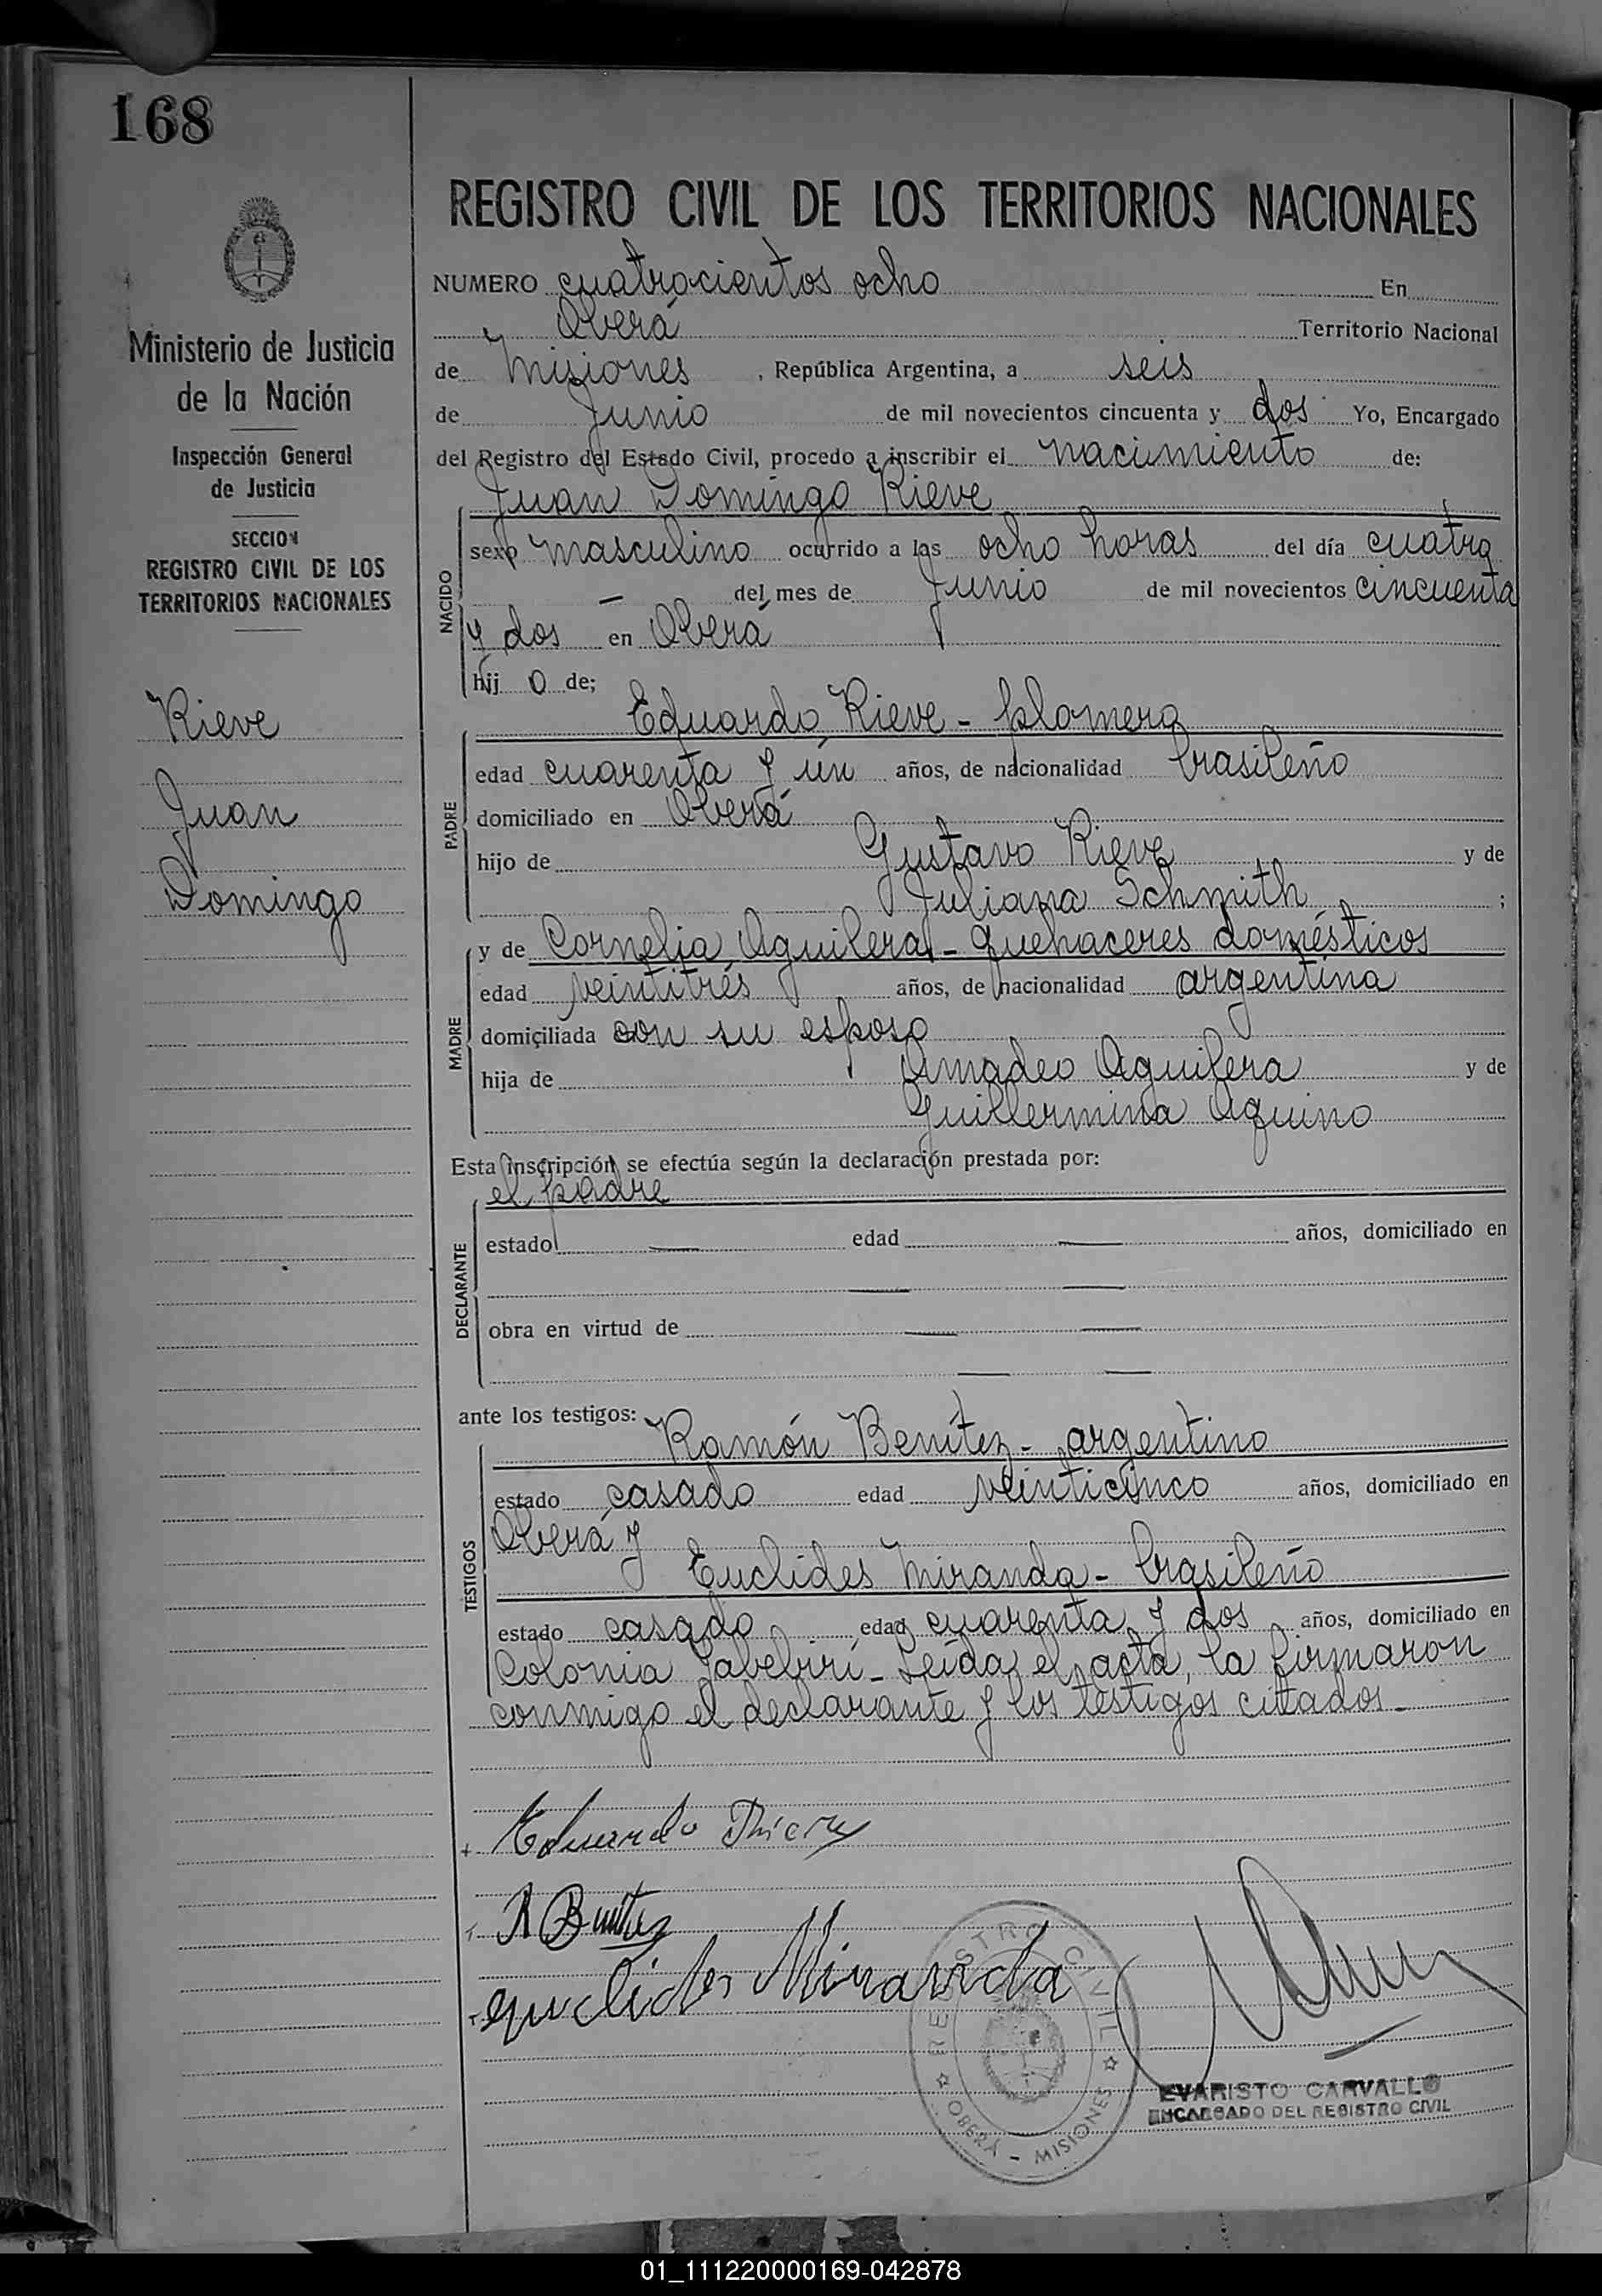 168
Ministerio de Justicia
de la Nación
Inspección General
de Justicia
SECCION
REGISTRO CIVIL DE LOS
TERRITORIOS NACIONALES
Rieve
Juan
Domingo
REGISTRO CIVIL DE LOS TERRITORIOS NACIONALES
NUMERO cuatrocientos ocho En
Oberá Territorio Nacional
de Misiones , República Argentina, a seis
de Junio de mil novecientos cincuenta y dos Yo, Encargado
del Registro del Estado Civil, procedo a inscribir el nacimiento de:
Juan Domingo Rieve
NACIDO
sexo masculino ocurrido a las ocho horas del día cuatro
— del mes de Junio de mil novecientos cincuenta
y dos en Oberá
hij o de;
Eduardo Rieve - plomero
PADRE
edad cuarenta y ún años, de nacionalidad brasileño
domiciliado en Oberá
hijo de Gustavo Rieve y de
Juliana Schmith ;
y de Cornelia Aguilera - quehaceres domésticos
MADRE
edad veintitrés años, de nacionalidad argentina
domiciliada con su esposo
hija de Amadeo Aguilera y de
Guillermina Aquino
Esta inscripción se efectúa según la declaración prestada por:
el padre
DECLARANTE
estado — edad — años, domiciliado en
— —
obra en virtud de — —
— —
ante los testigos:
Ramón Benítez - argentino
TESTIGOS
estado casado edad veinticinco años, domiciliado en
Oberá y
Euclides Miranda - brasileño
estado casado edad cuarenta y dos años, domiciliado en
Colonia Yabebirí - Leída el acta, la firmaron
conmigo el declarante y los testigos citados -
+ Eduardo
R Benitez
euclides Miranda
REGISTRO CIVIL
OBERÁ - MISIONES
EVARISTO CARVALLO
ENCARGADO DEL REGISTRO CIVIL
01_111220000169-042878